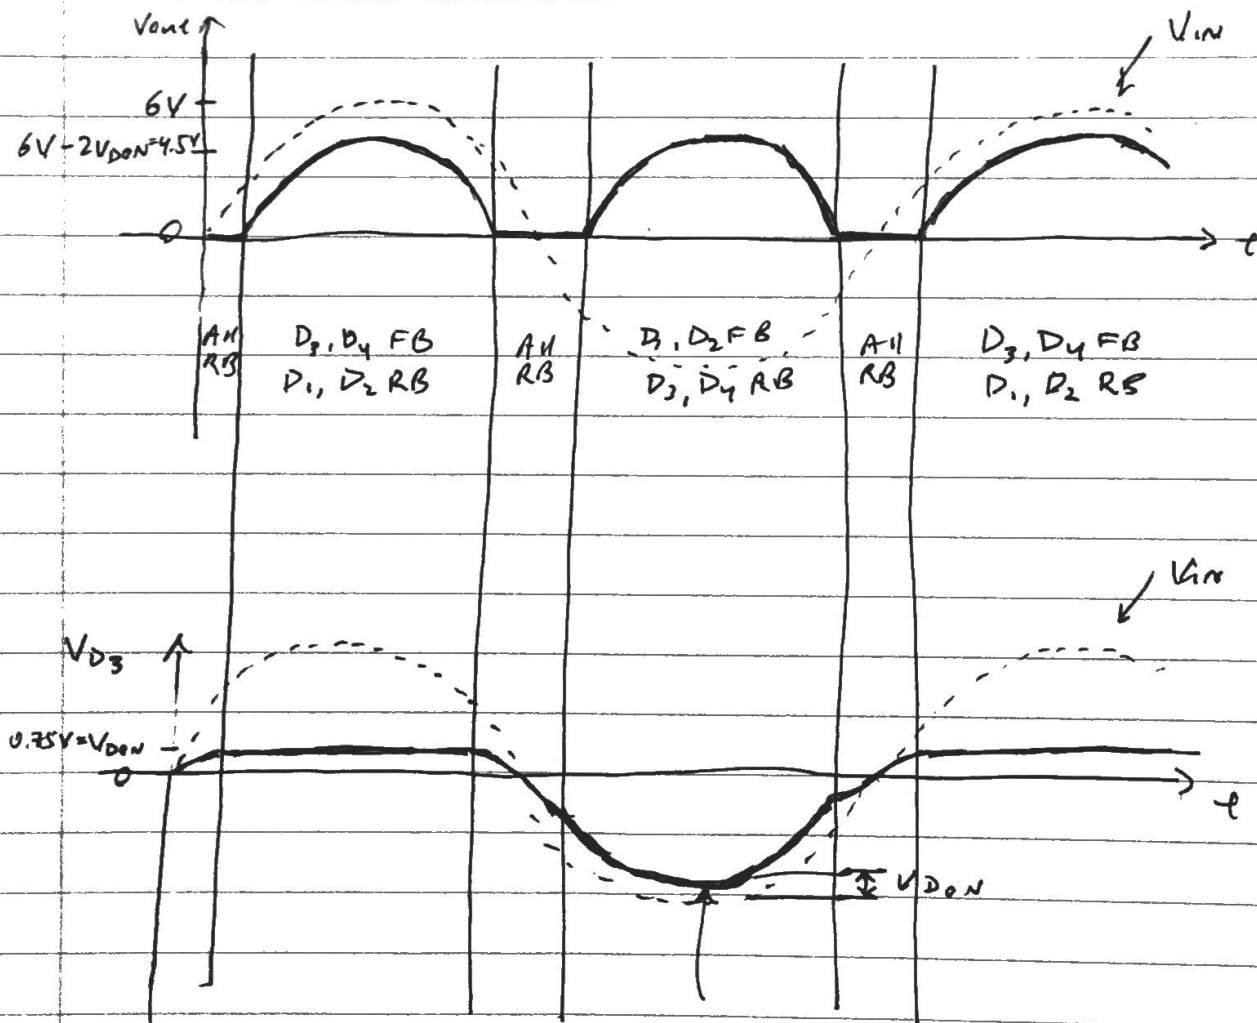 Vout
VIN
6V
6V-2VDON=4.5V
0
t
All RB
D3, D4 FB
D1, D2 RB
All RB
D1, D2 FB
D3, D4 RB
All RB
D3, D4 FB
D1, D2 RB
VIN
VD3
0.75V=VDON
0
t
VDON